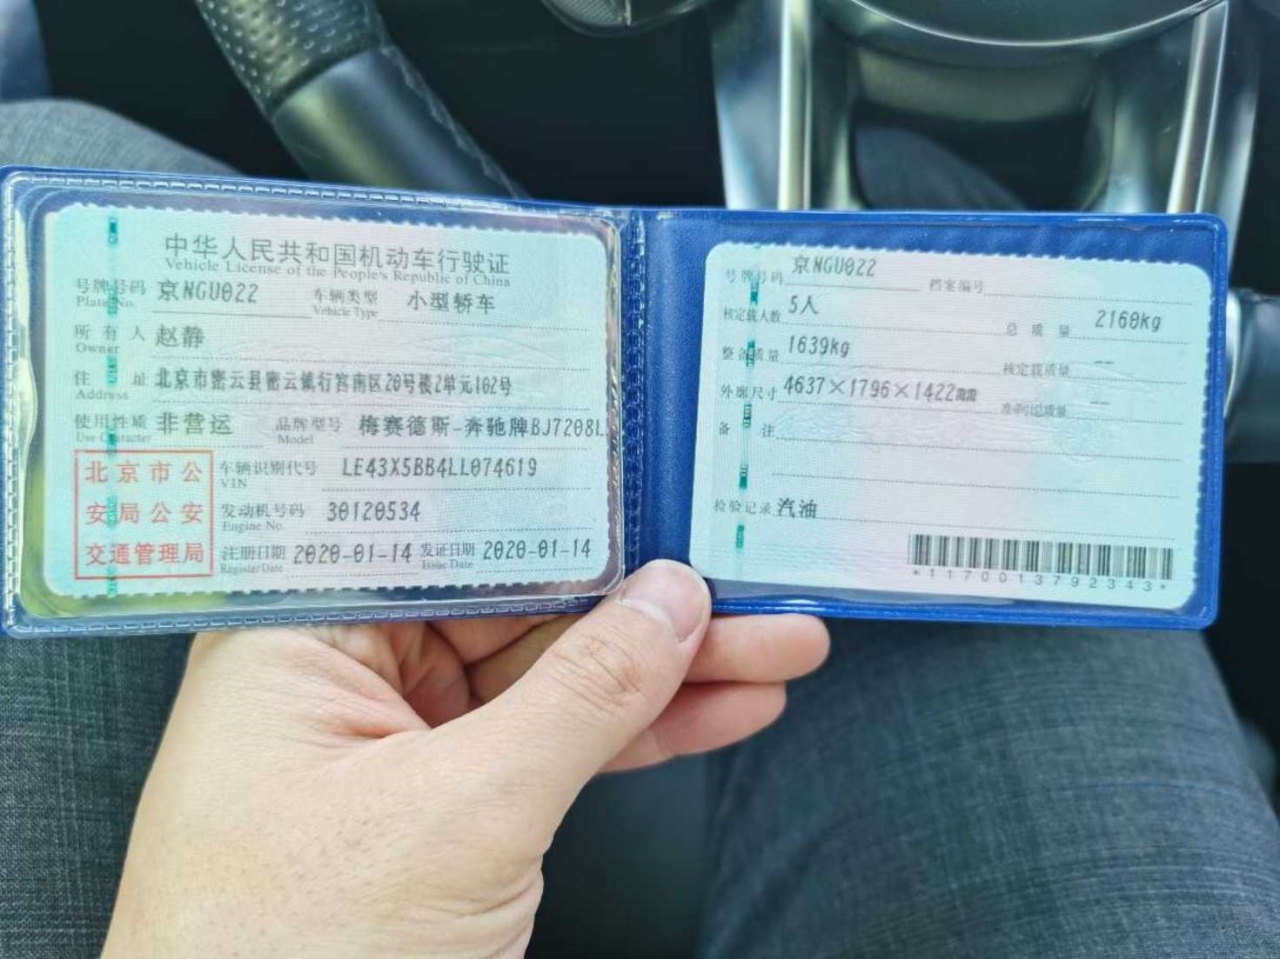 中华人民共和国机动车行驶证
Vehicle License of the People's Republic of China
号牌号码 京NGU022 车辆类型 小型轿车
Plate No. Vehicle Type
所有人 赵静
Owner
住址 北京市密云县密云镇行宫南区20号楼2单元102号
Address
使用性质 非营运 品牌型号 梅赛德斯-奔驰牌BJ7208L
Use Character Model
北京市公
安局公安
交通管理局
车辆识别代号 LE43X5BB4LL074619
VIN
发动机号码 30120534
Engine No.
注册日期 2020-01-14 发证日期 2020-01-14
Register Date Issue Date
号牌号码 京NGU022 档案编号
核定载人数 5人 总质量 2160kg
整备质量 1639kg 核定载质量 --
外廓尺寸 4637×1796×1422mm 准牵引总质量 --
备注
检验记录 汽油
*1170013792343*